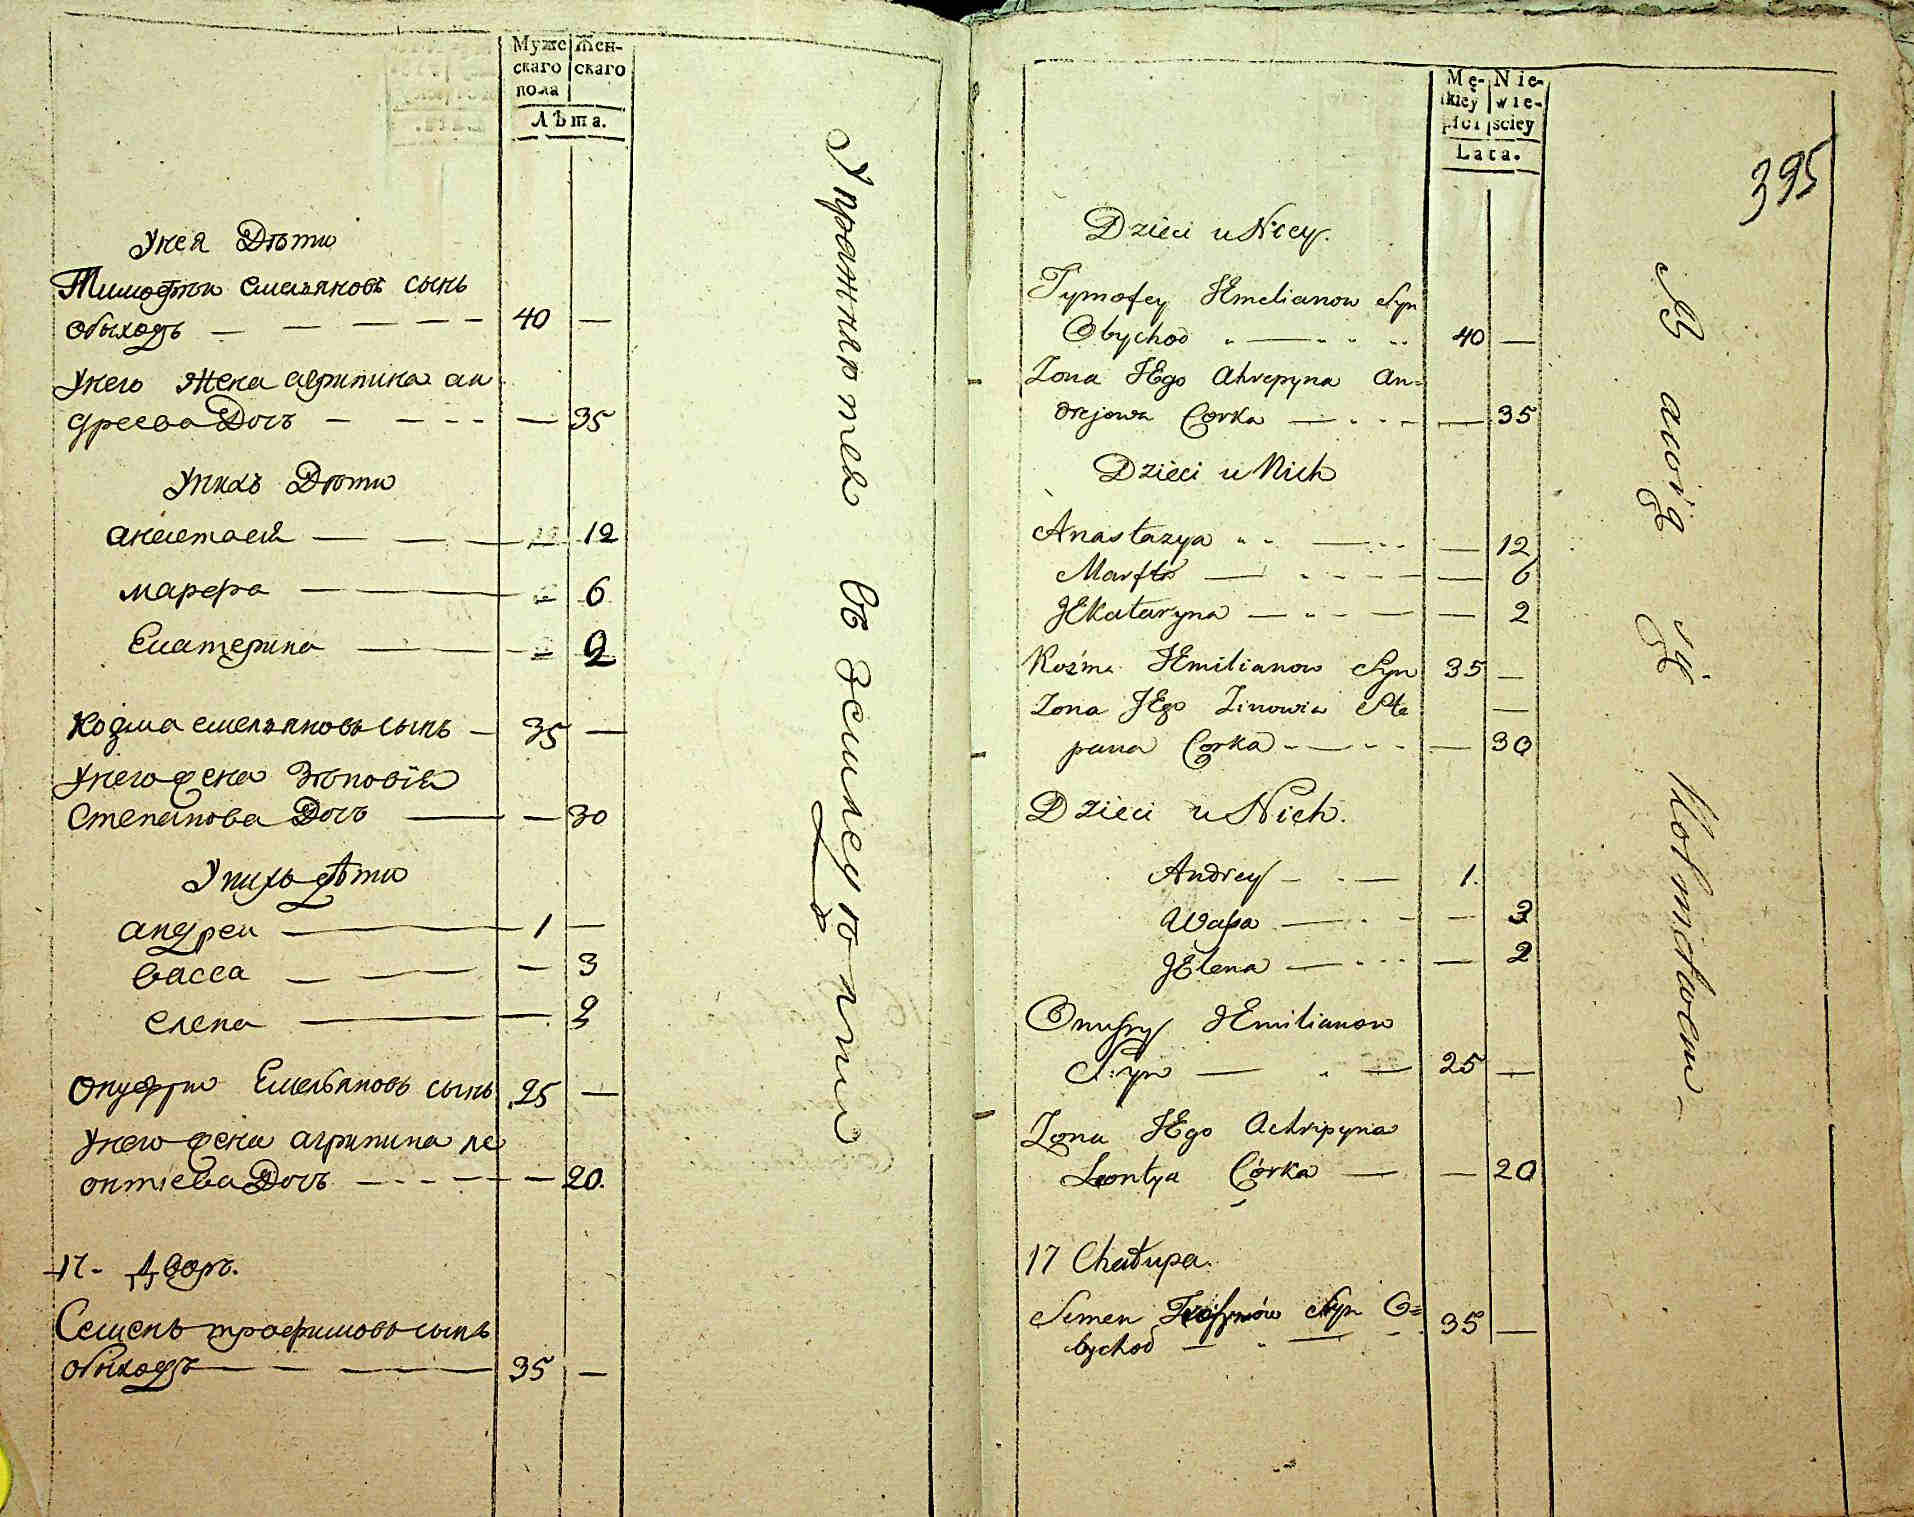 Муже Жен-
скаго скаго
пола
Лѣта.
Унея Дѣти
Тимофѣи емельяновъ сынъ
обыходъ — — — — — 40 —
Унего жена агрипина ан
дреева Дочъ — — — — 35
Унихъ Дѣти
анастасия — — — 12
марфа — — 6
Екатерина — — 2
Козма емельяновъ сынъ — 35 —
Унего жена Зѣновія
Степанова Дочъ — — 30
Унихъ дѣти
андреи — 1 —
васса — — — — 3
елена — — 2
Онуфрии Емельяновъ сынъ 25 —
Унего жена агрипина ле
онтіева Дочъ — — — — 20.
17- Дворъ.
Семенъ трофимовъ сынъ
обыходъ — — — 35 —
Упражняются въ земледѣліи
Mę- Nie-
skiey wie-
płci sciey
Lata.
395
Dzieci u Niey.
Tymofey JEmelianow Syn
Obychod — 40 —
Zona JEgo Ahrepyna An=
drejowa Corka — — 35
Dzieci u Nich
Anastazya — — 12
Marfa — — 6
JEkataryna — — 2
Koźma JEmilianow Syn 35 —
Zona JEgo Zinowia Ste —
pana Corka — — 30
Dzieci u Nich.
Andrey — — 1.
Wassa — — 3
JElena — — 2
Onufry JEmilianow
Syn — — 25 —
Zona JEgo Achripyna
Leontya Córka — — 20
17 Chałupa.
Semen Trofymów Syn O=
bychod — — 35 —
Bawią się Rolnictwem —